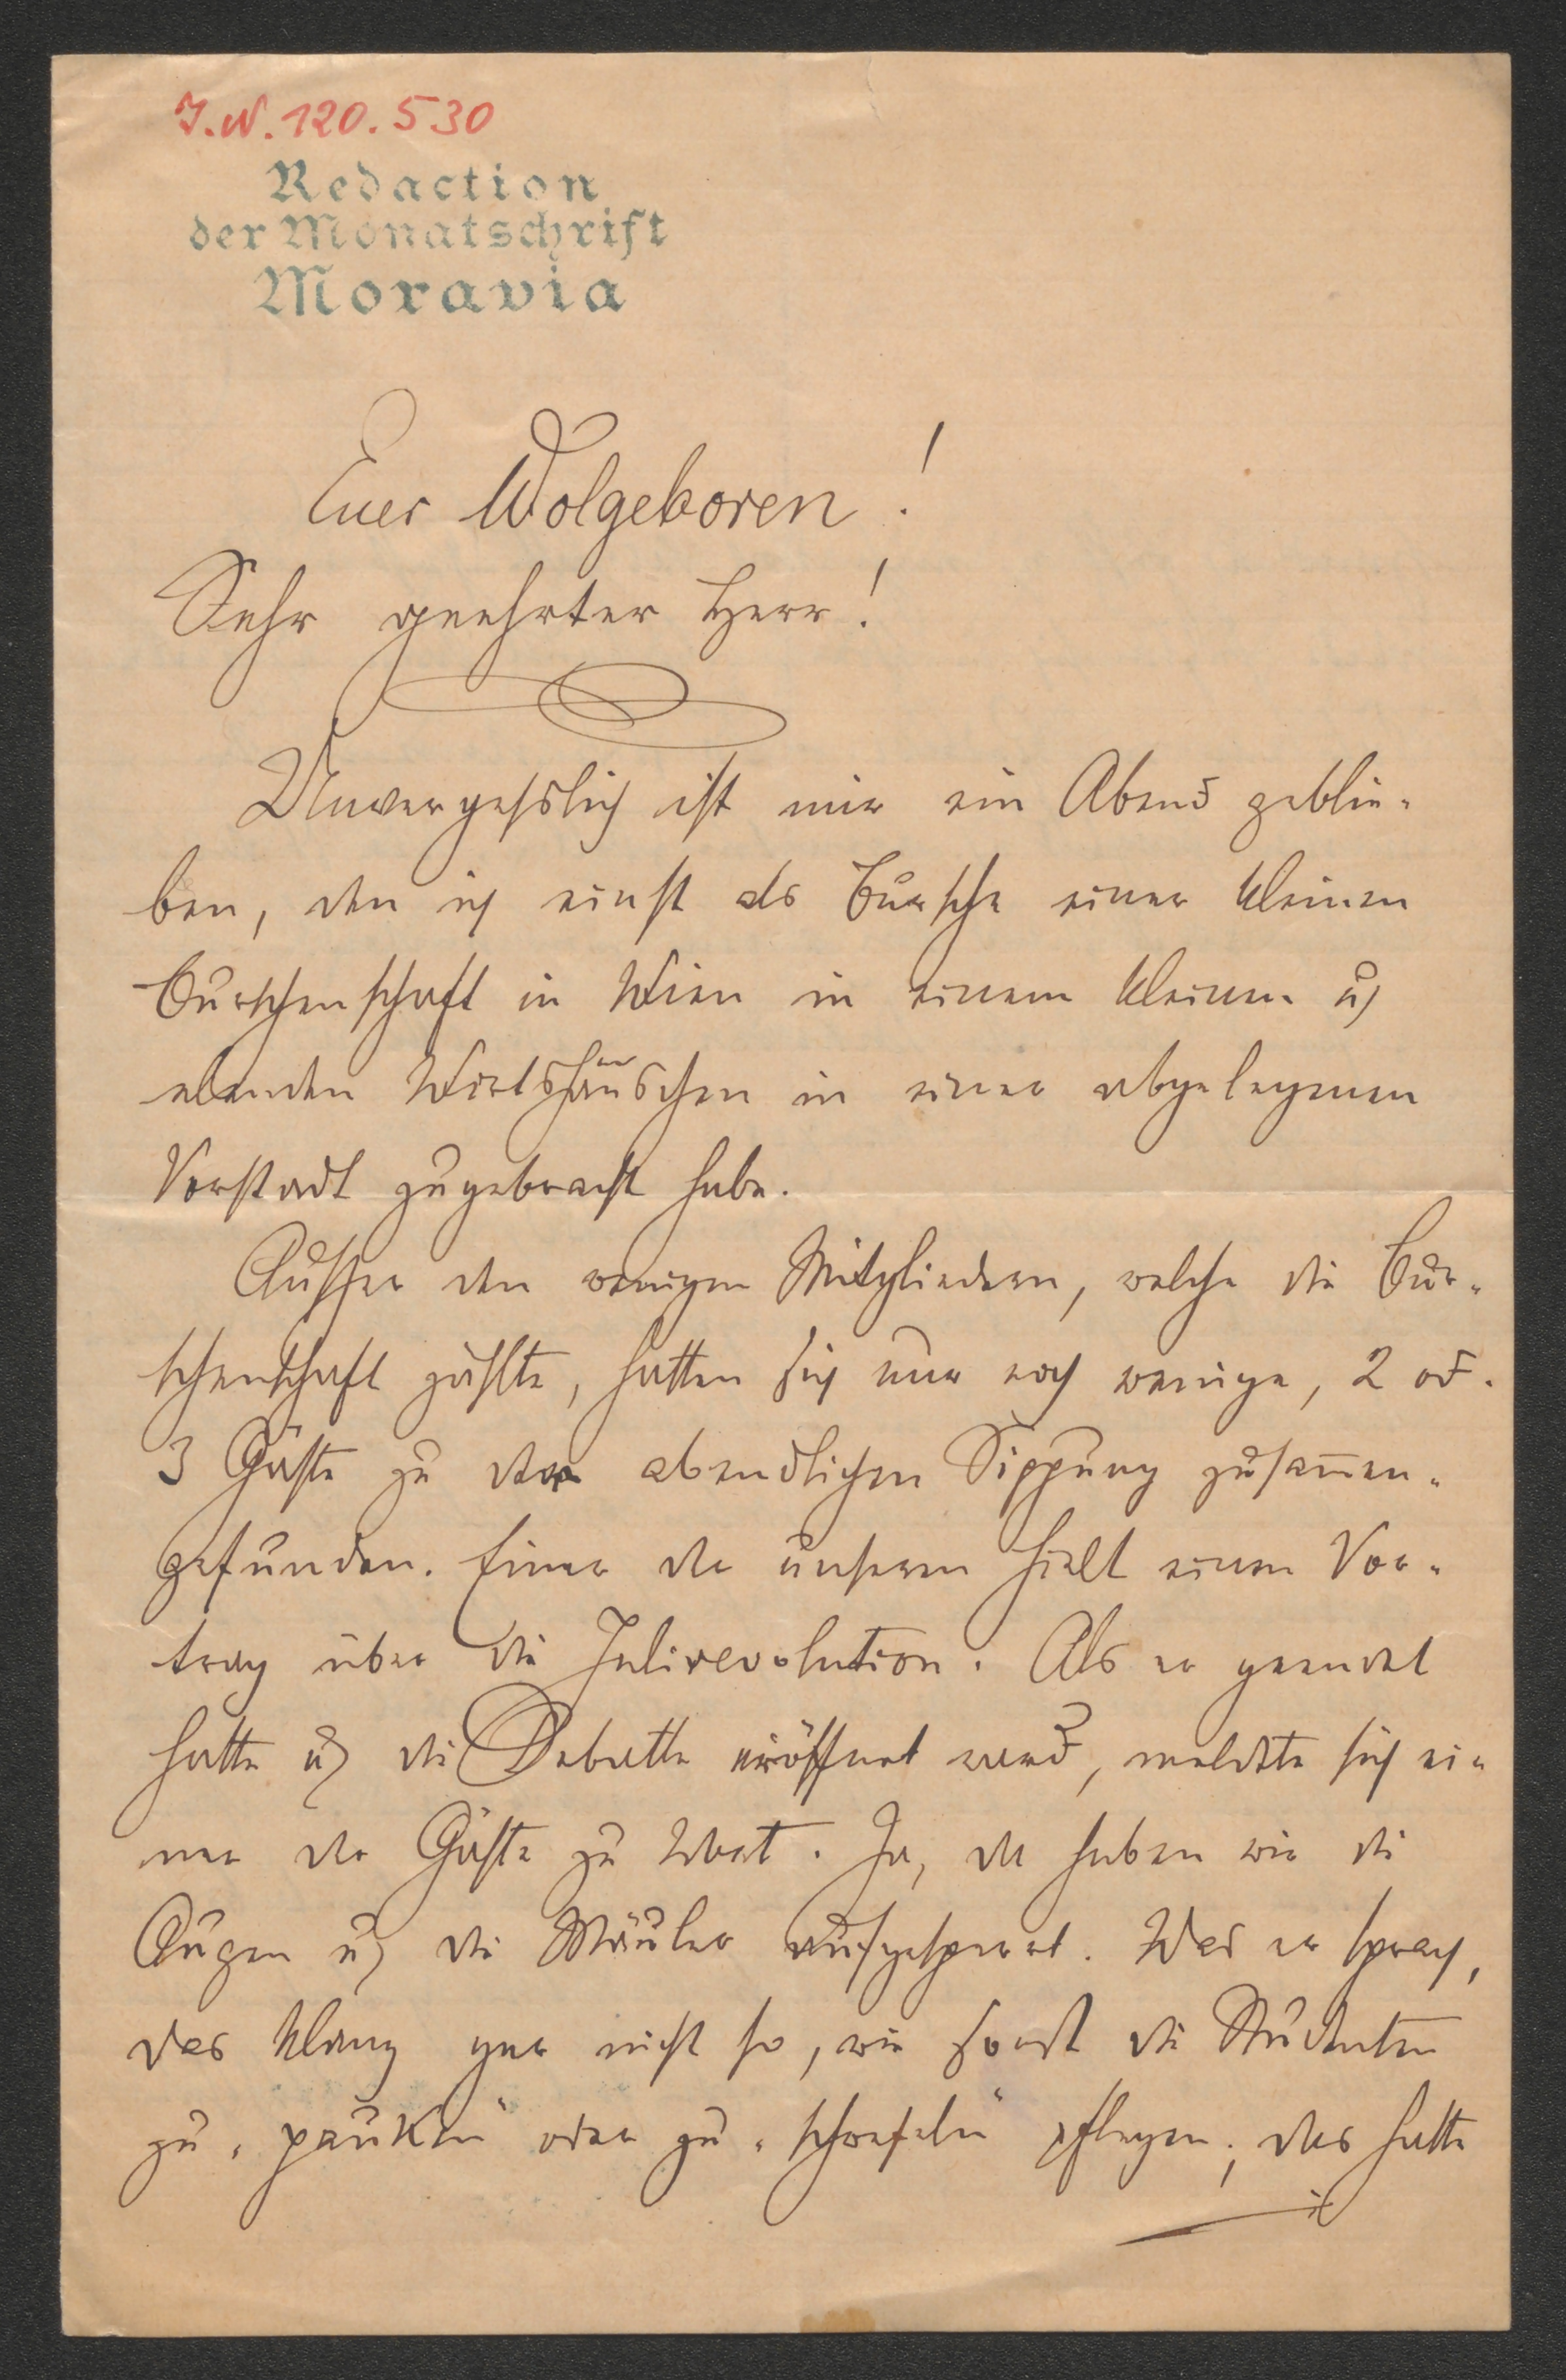 J.N. 120.530
Redaction
der Monatschrift
Moravia
Euer Wolgeboren!
Sehr geehrter Herr!
Unvergesslich ist mir ein Abend geblie-
ben, den ich einst als Bursche einer kleinen
Burschenschaft in Wien in einem kleinen u
elenden Wirtshäuschen in einer abgelegenen
Vorstadt zugebracht habe.
Ausser den wenigen Mitgliedern, welche die Bur-
schenschaft zählte, hatten sich nur noch wenige, 2 od.
3 Gäste zu der abendlichen Sippung zusam̅en-
gefunden. Einer der unseren hielt einen Vor-
trag über die Julirevolution. Als er geendet
hatte u die Debatte eröffnet ward, meldete sich ei-
ner der Gäste zu Wort. Ja, da haben wir die
Augen u die Mäuler aufgesperrt. Was er sprach,
das klang gar nicht so, wie sonst die Studenten
zu „pauken“ oder zu „schwefeln“ pflegen; das hatte